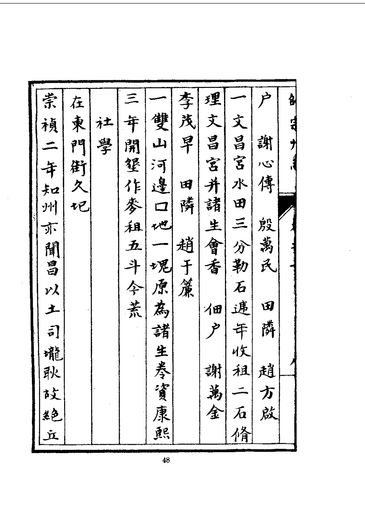 户　謝心傳　殷萬民　田隣　趙方啟
一文昌宮水田三分勒石遞年收租二石脩
理文昌宮并諸生會香　佃户　謝萬金
李茂早　田隣　趙于簾
一雙山河邊口地一塊原為諸生卷資康熙
三年開墾作麥租五斗今荒
社學
在東門街久圮
崇禎二年知州亦聞昌以土司瓏耿故絶立
48